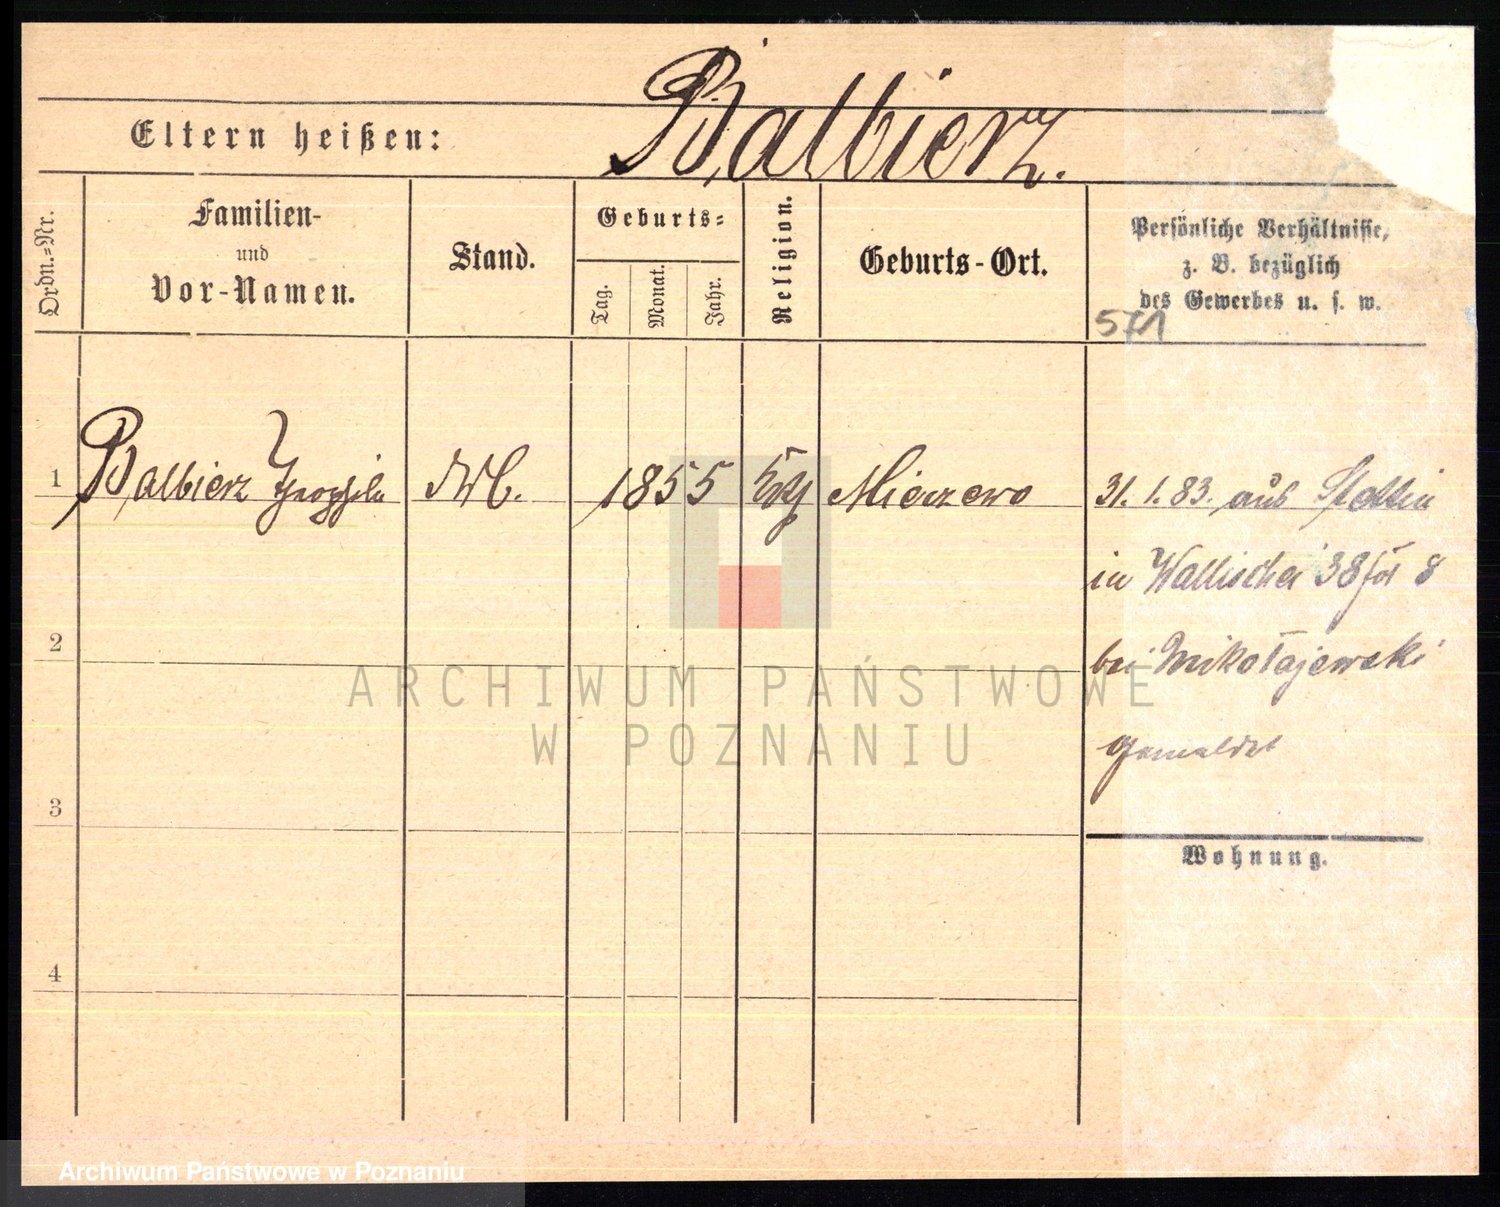 Balbierz.
Eltern heißen:
Ordn.=Nr.
Familien-
und
Vor-Namen.
Stand.
Geburts=
Tag.
Monat.
Jahr.
Religion.
Geburts-Ort.
Persönliche Verhältnisse,
z. B. bezüglich
des Gewerbes u. s. w.
571
1 Balbierz 1855 Mieczewo
31. 1. 83. aus Stettin
in Wallischei 38 8
bei Mikołajewski
gemeldet
2
3
4
Wohnung.
ARCHIWUM PAŃSTWOWE
W POZNANIU
Archiwum Państwowe w Poznaniu